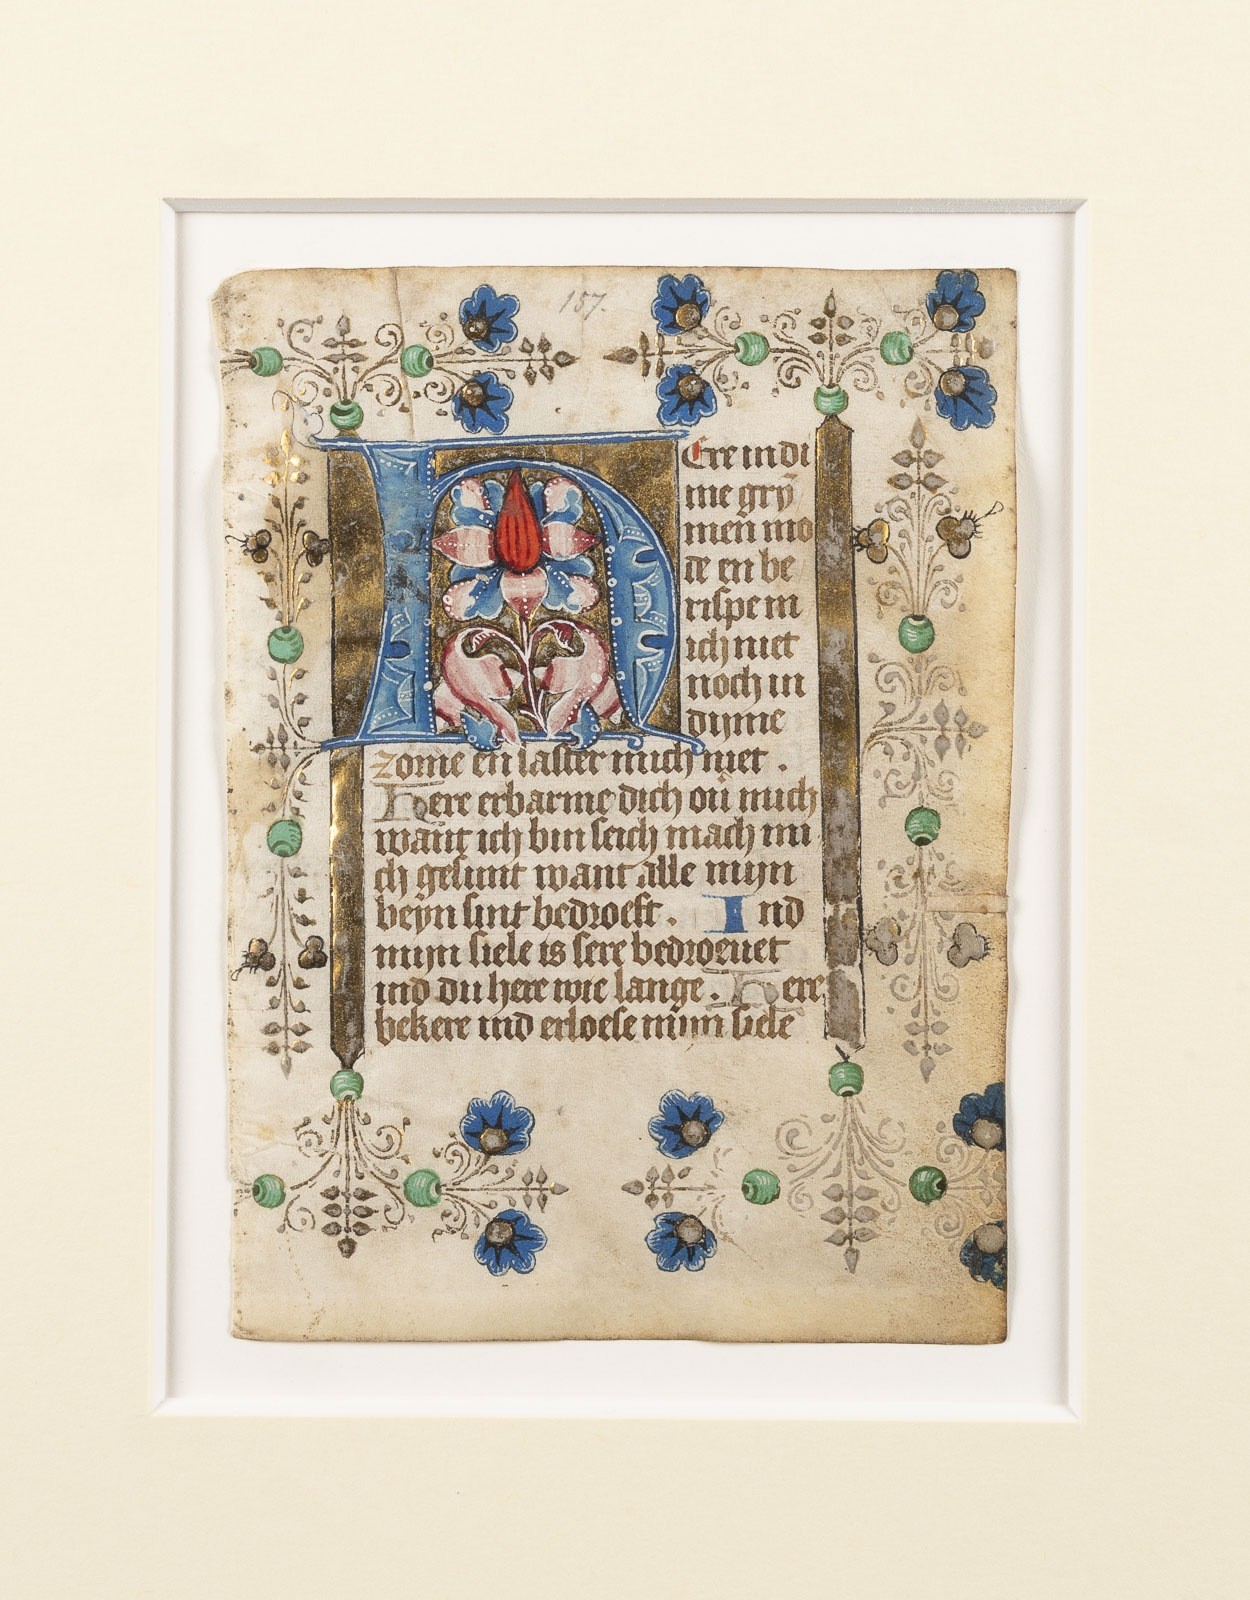 157.
HEre in di
me gry̅
men mo
de en be
rispe m
ich niet
noch in
dijme
zorne en laster mich niet .
Here erbarme dich ou̅ mich
wan̅t ich bin seich mach mi
ch gesunt want alle mijn
beyn sint bedroeft . Ind
mijn siele is sere bedroeuet
ind du here wie lange . Here
bekere ind erloese mijn siele